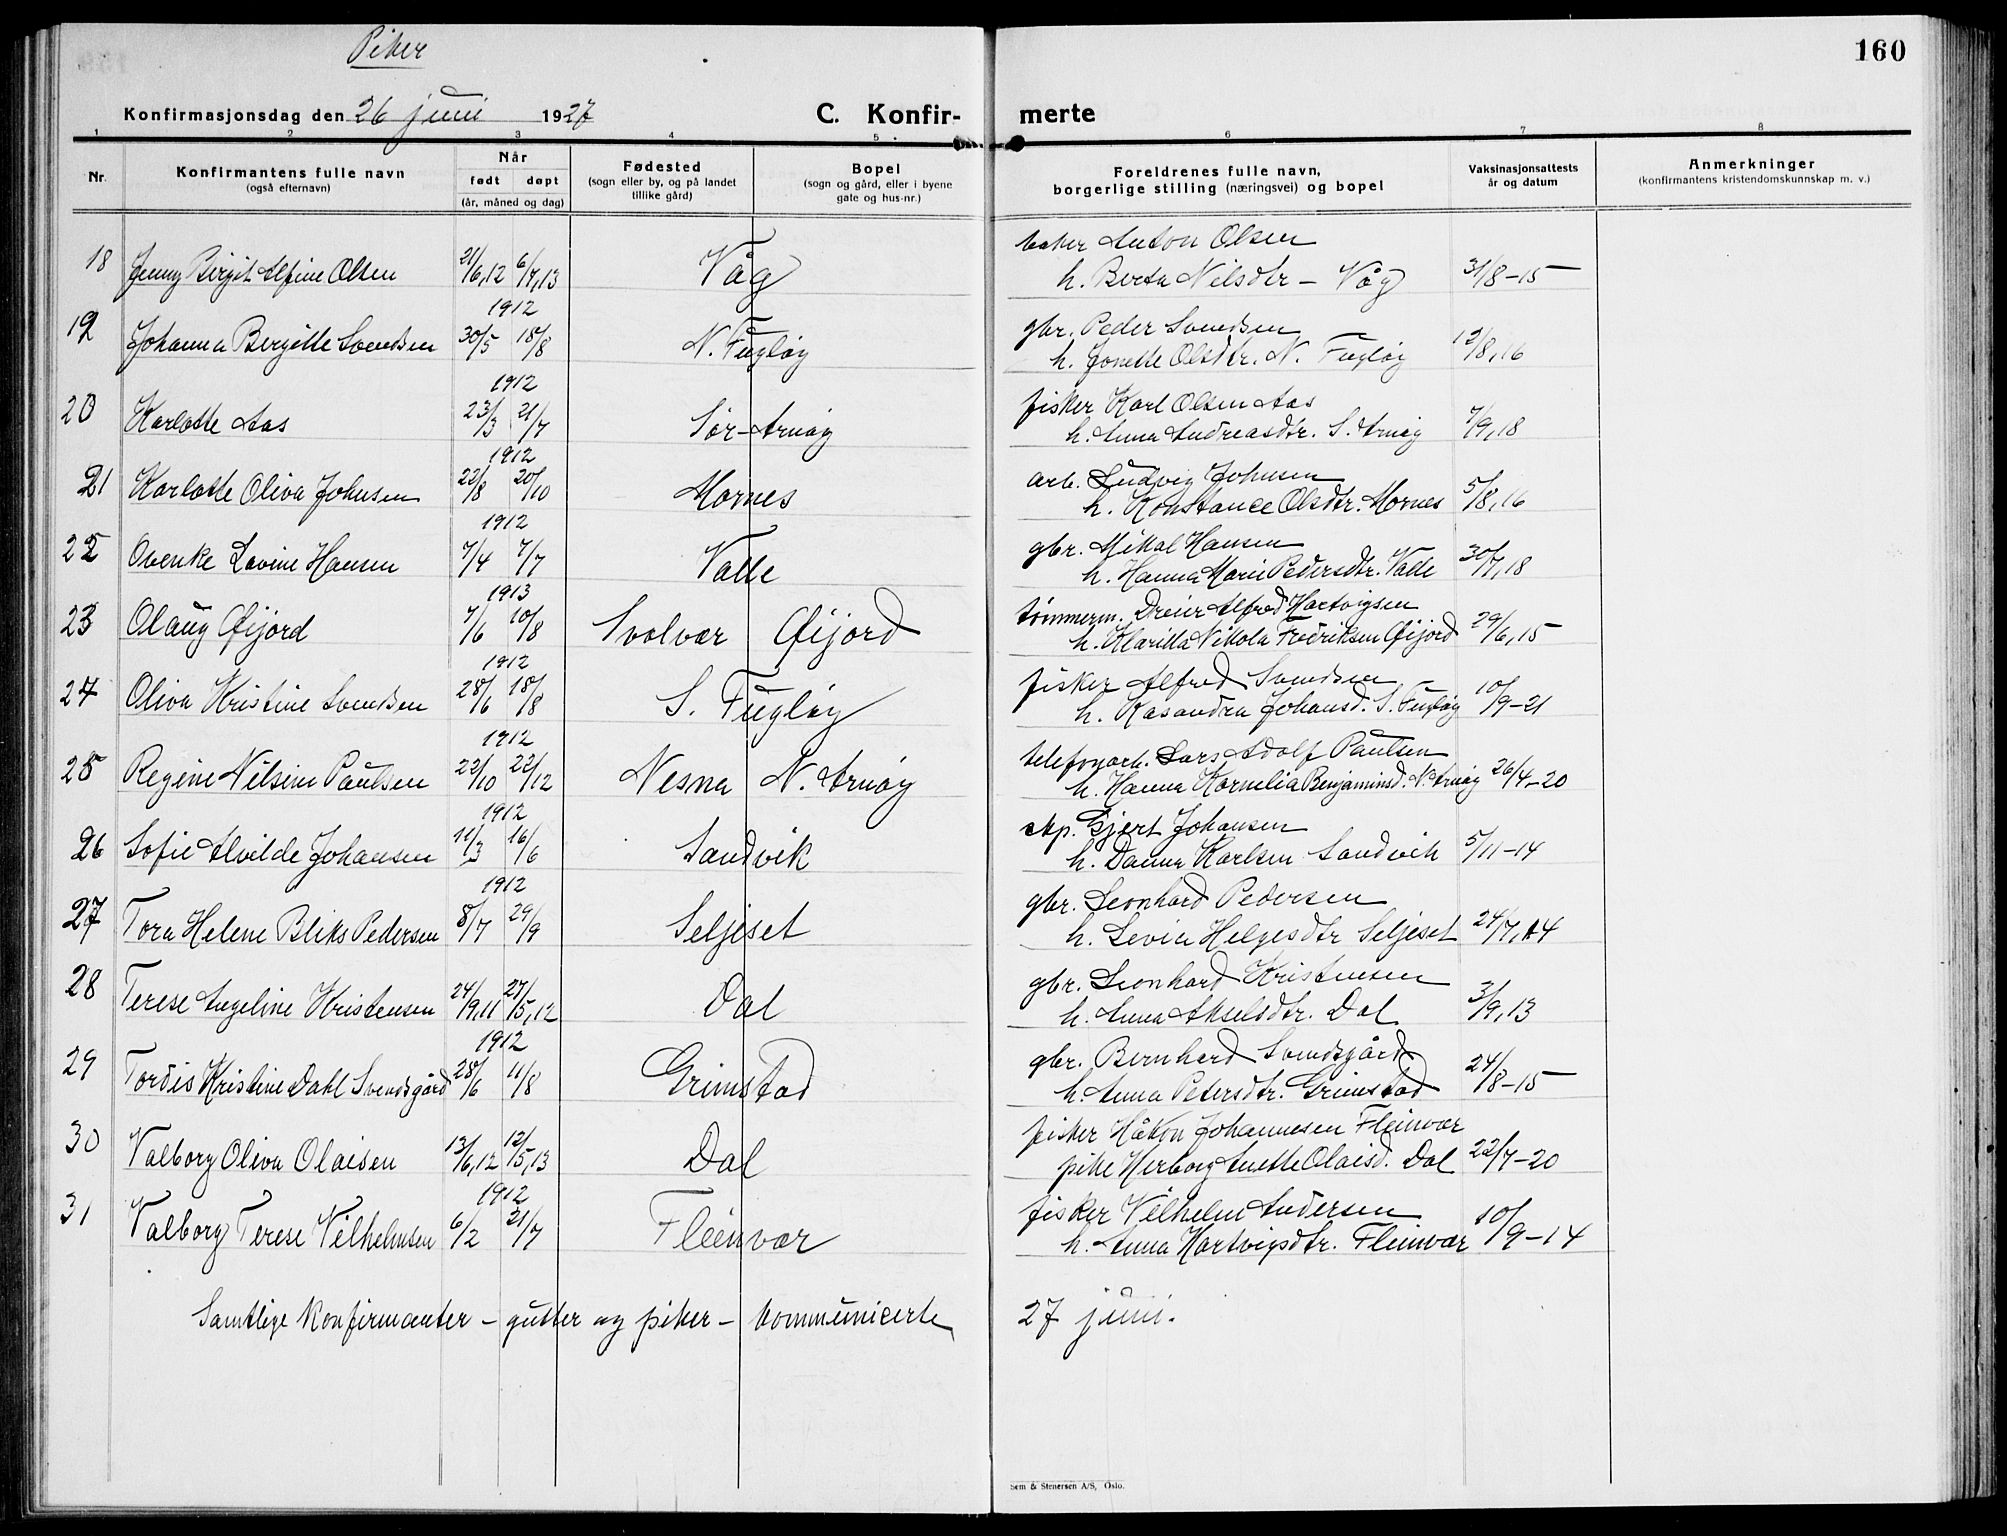 Piker
160
Konfirmasjonsdag den 26 juni 1927
C. Konfir- merte
1 2 3 4 5 6 7 8
Nr. Konfirmantens fulle navn (også efternavn) Når født døpt (år, måned og dag) Fødested (sogn eller by, og på landet tillike gård) Bopel (sogn og gård, eller i byene gate og hus-nr.) Foreldrenes fulle navn, borgerlige stilling (næringsvei) og bopel Vaksinasjonsattests år og datum Anmerkninger (konfirmantens kristendomskunnskap m. v.)
baker Anton Olsen
18 Jenny Birgit Alfine Olsen 21/6,12 6/7,13 Våg h. Berta Nilsdtr – Våg 31/8–15
1912 gbr. Peder Svendsen
19 Johanna Bergitte Svendsen 30/5 18/8 N. Fugløy h. Jonette Olsdtr. N. Fugløy 12/8,16
1912 fisker Karl Olsen Aas
20 Karlotte Aas 23/3 21/7 Sør-Arnøy h. Anna Andreasdtr. S. Arnøy 7/9,18
1912 arb. Ludvig Johnsen
21 Karlotte Oliva Johnsen 22/8 20/10 Mornes h. Konstance Olsdtr. Mornes 5/8,16
1912 gbr. Mikal Hansen
22 Ovenke Lovine Hansen 7/4 7/7 Valle h. Hanna Marie Pedersdtr. Valle 30/7,18
1913 tømmerm. Dreier Alfred Hartvigsen
23 Olaug Øijord 7/6 10/8 Svolvær Øijord h. Klarilla Nikola Fredriksen Øijord 29/6,15
1912 fisker Alfred Svendsen
24 Oliva Kristine Svendsen 28/6 18/8 S. Fugløy h. Kasandra Johansd. S. Fugløy 10/9–21
1912 telefonarb. Lars Adolf Paulsen
25 Regine Nilsine Paulsen 22/10 22/12 Nesna N. Arnøy h. Hanna Kornelia Benjaminsd. N. Arnøy 26/4–20
1912 eksp. Gjert Johansen
26 Sofie Alvilde Johansen 11/3 16/6 Sandvik h. Danna Karlsen Sandvik 5/11–14
1912 gbr. Leonhard Pedersen
27 Tora Helene Bliks Pedersen 8/7 29/9 Seljeset h. Levia Helgesdtr Seljeset 24/7,14
gbr. Leonhard Kristensen
28 Terese Angeline Kristensen 24/9,11 27/5,12 Dal h. Anna Akselsdtr. Dal 3/9,13
1912 gbr. Bernhard Svendsgård
29 Tordis Kristine Dahl Svendsgård 28/6 11/8 Grimstad h. Anna Petersdtr. Grimstad 24/8–15
fisker Håkon Johannesen Fleinvær
30 Valborg Oliva Olaisen 13/6,12 12/5,13 Dal pike Herborg Anette Olaisd. Dal 22/7–20
1912 fisker Vilhelm Andersen
31 Valborg Terese Vilhelmsen 6/2 21/7 Fleinvær h. Anna Hartvigsdtr. Fleinvær 10/9–14
Samtlige konfirmanter – gutter og piker – kommunicerte 27 juni.
Sem & Stenersen A/S, Oslo.